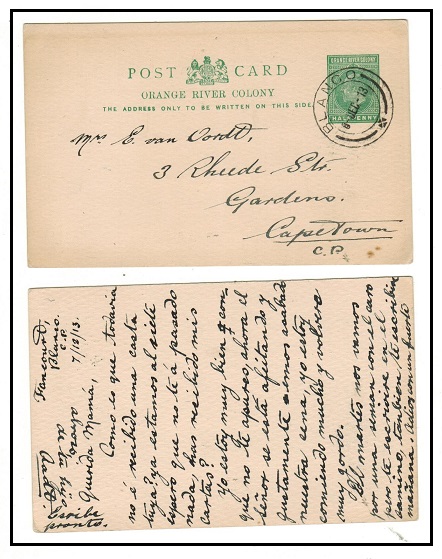 POST CARD
ORANGE RIVER COLONY
THE ADDRESS ONLY TO BE WRITTEN ON THIS SIDE.
ORANGE RIVER COLONY
HALFPENNY
BLANCO
13
Mrs E. van Oordt,
3 Rheede Str.
Gardens.
Cape Town
C.P.
Blanco.
C.P.
7/12/13.
Querida Mamá,
Como es que todavia
no é recibido una carta
tuya? ya estamos al siete
espero que no te á pasado
nada, has recibido mis
cartas?
Yo estoy muy bien
que no te apures, ahora el
señor se está afeitando y
justamente emos acabado
nuestra cena, yo estoy
comiendo mucho y volveré
muy gordo.
El martes nos vamos
por una semana con el caro
pero te escribiré en el
camino, tambien te escribiré
mañana. Adios con un fuerte
abrazo
de la tuja
Escribe
pronto.